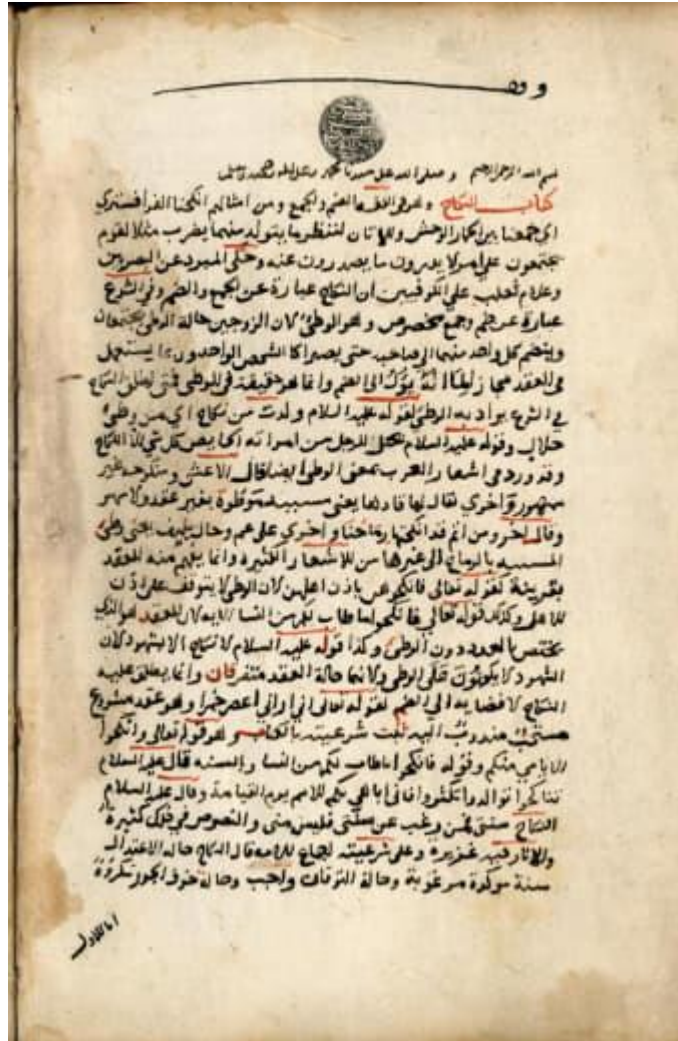 وقف
بسم الله الرحمن الرحيم وصلى الله على سيدنا محمد وعلى اله وصحبه وسلم
كتاب النكاح وهو في اللغة الضم والجمع ومن امثالهم انكحنا الفرا فسنرى
اي جمعنا بين الحمار الوحش والاتان لننظر ما يتولد منهما يضرب مثلا لقوم
يجتمعون على امر لا يدرون ما يصدرون عنه وحكى المبرد عن البصريين
وغلام ثعلب على الكوفيين ان النكاح عبارة عن الجمع والضم وفي الشرع
عبارة عن ضم وجمع مخصوص وهو الوطئ لان الزوجين حالة الوطئ يجتمعان
وينضم كل واحد منهما الى صاحبه حتى يصيرا كالشخص الواحد وربما يستعمل
في للعقد مجازا لما انه يؤل الى الضم وانما هو حقيقة في الوطى فمتى اطلق النكاح
في الشرع يراد به الوطئ لقوله عليه السلام ولدت من نكاح اي من وطئ
حلال وقوله عليه السلام يحل للرجل من امراته الحايض كل شي الا النكاح
وقد ورد في اشعار العرب بمعنى الوطئ ايضا قال الاعشى ومنكوحة غير
ممهورة واخرى يقال لها فادها يعنى مسبية موطؤة بغير عقد ولا مهر
وقال اخر ومن ايم قد انكحتها رماحنا واخرى على عم وخال يلهف يعنى وطئ
المسبيه بالرماح الى غيرها من الاشعار الكثيره وانما يفهم منه العقد
بقرينة كقوله تعالى فانكحوهن باذن اهلهن لان الوطئ لا يتوقف على اذن
الاهل وكذلك قوله تعالى فانكحوا ما طاب لكم من النسا الايه لان العقد هو الذي
يختص بالعدد دون الوطئ وكذا قوله عليه السلام لا نكاح الا بشهود لان
الشهود لا يكونون على الوطئ ولانهما حالة العقد متفرقان وانما يطلق عليه
النكاح لافضايه الى الضم لقوله تعالى اني اراني اعصر خمرا وهو عقد مشروع
مستحب مندوب اليه ثبت شرعيته بالكتاب وهو قوله تعالى وانكحوا
الايامى منكم وقوله فانكحوا ما طاب لكم من النسا والسنه قال عليه السلام
تناكحوا توالدوا تكثروا فاني اباهي بكم الامم يوم القيامة وقال عليه السلام
النكاح سنتي فمن رغب عن سنتي فليس منى والنصوص في ذلك كثيرة
والاثار فيه غزيرة وعلى شرعيته اجماع الامه قال النكاح حاله الاعتدال
سنة موكدة مرغوبة وحالة التوقان واجب وحالة خوف الجور مكروه